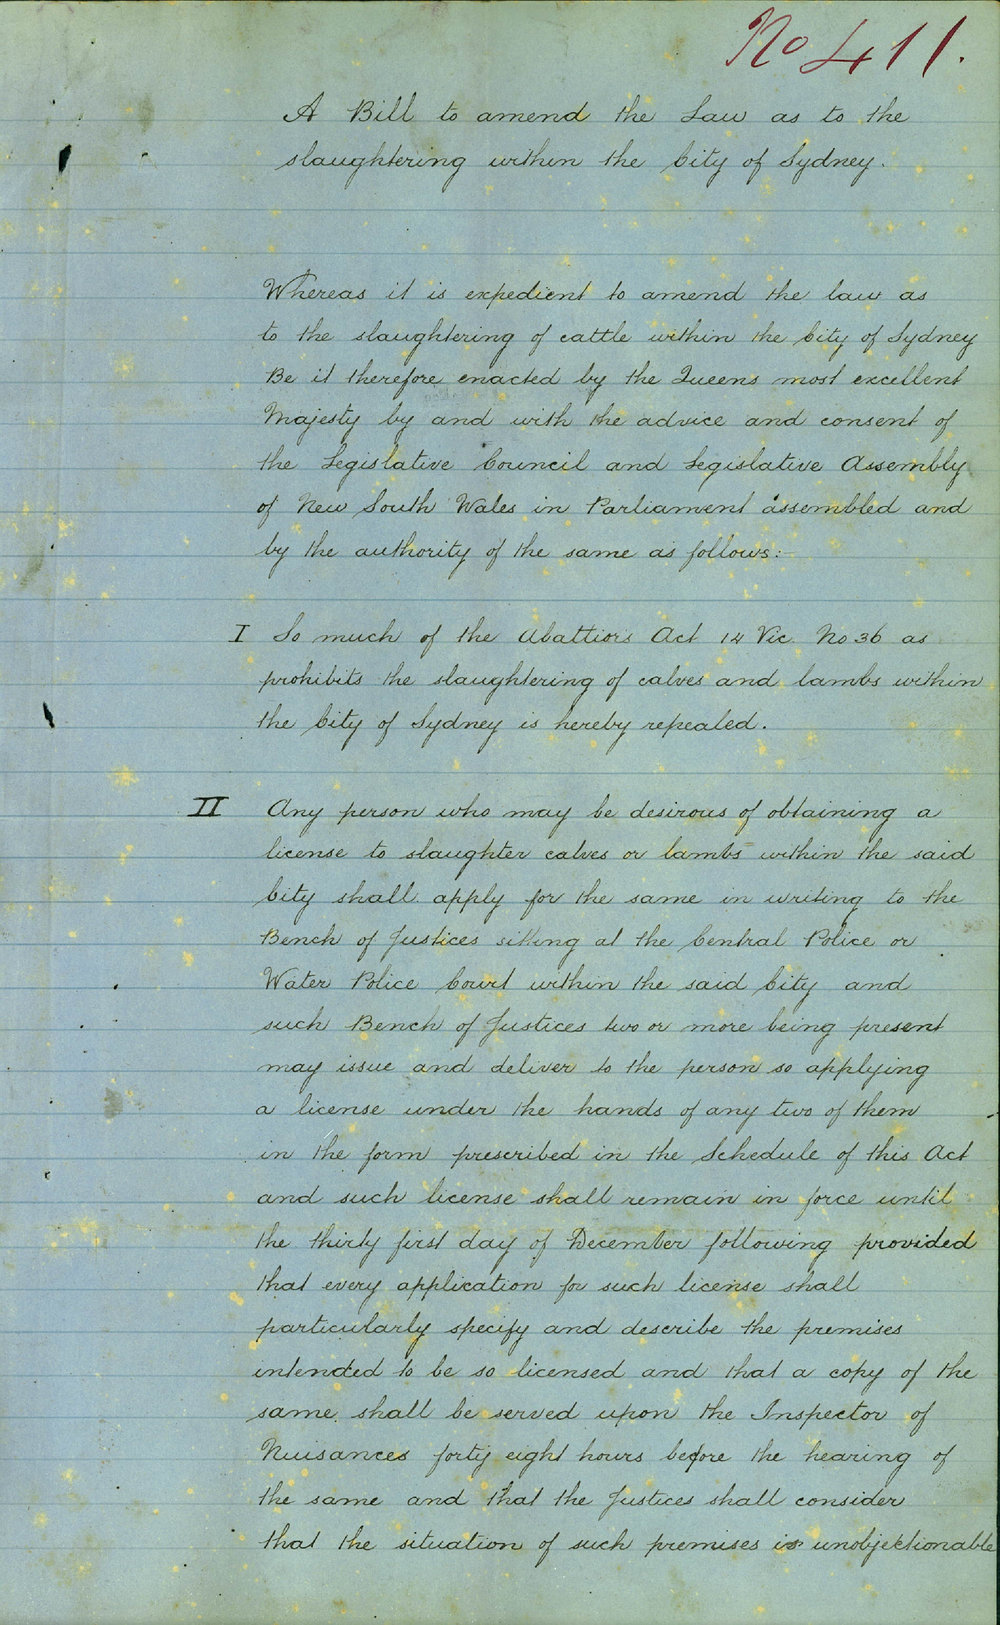 No 411.
A Bill to amend the Law as to the
slaughtering within the City of Sydney.
Whereas it is expedient to amend the law as
to the slaughtering of cattle within the City of Sydney
Be it therefore enacted by the Queens most excellent
Majesty by and with the advice and consent of
the Legislative Council and Legislative Assembly
of New South Wales in Parliament assembled and
by the authority of the same as follows:-
I So much of the Abattiors Act 14 Vic. No 36 as
prohibits the slaughtering of calves and lambs within
the City of Sydney is hereby repealed.
II Any person who may be desirous of obtaining a
license to slaughter calves or lambs within the said
City shall apply for the same in writing to the
Bench of Justices sitting at the Central Police or
Water Police Court within the said City and
such Bench of Justices two or more being present
may issue and deliver to the person so applying
a license under the hands of any two of them
in the form prescribed in the Schedule of this Act
and such license shall remain in force until
the thirty first day of December following provided
that every application for such license shall
particularly specify and describe the premises
intended to be so licensed and that a copy of the
same shall be served upon the Inspector of
Nuisances forty eight hours before the hearing of
the same and that the Justices shall consider
that the situation of such premises is unobjektionable